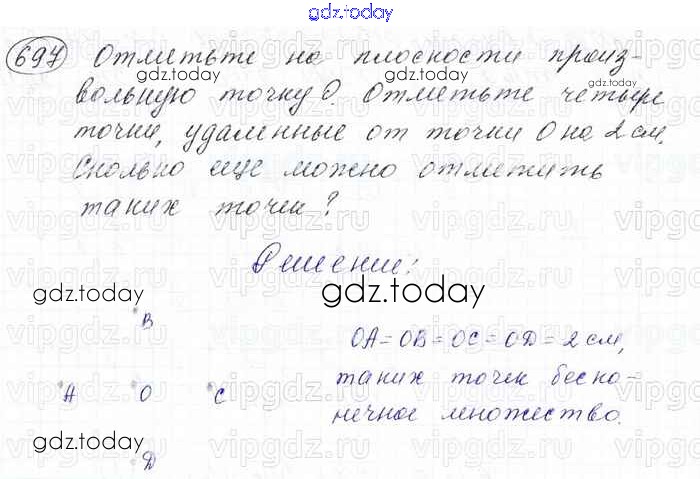 gdz.today
697 Отметьте на плоскости произ-
gdz.today gdz.today
вольную точку О. Отметьте четыре
точки, удаленные от точки О на 2 см.
Сколько еще можно отметить
таких точек?
Решение:
gdz.today gdz.today
В
ОА = ОВ = ОС = ОД = 2 см,
А О С
таких точек беско-
нечное множество.
gdz.today
Д
vipgdz.ru